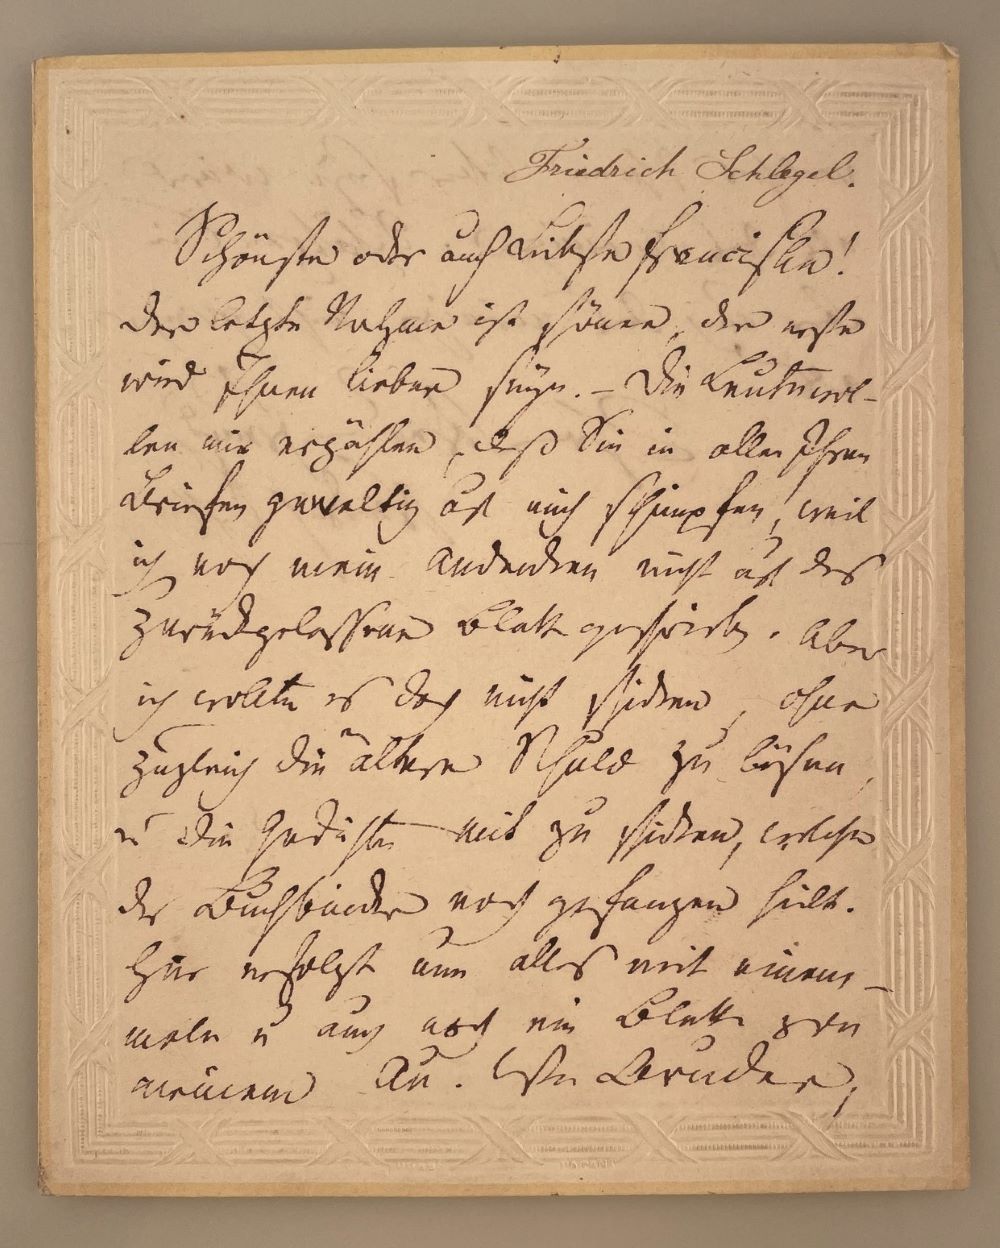 Friedrich Schlegel.
Schönste oder auch Liebste Franciska!
der letzte Nahme ist schöner, der erste
wird Ihnen lieber seyn. – Die Leute wol-
len mir erzählen, daß Sie in allen Ihren
Briefen gewaltig auf mich schimpfen, weil
ich noch mein Andencken nicht auf das
zurückgelassene Blatt geschrieben. Aber
ich wollte es doch nicht schicken, ohne
zugleich die ältere Schuld zu lösen,
u die Gedichte mit zu schicken, welche
der Buchbinder noch gefangen hielt.
Hier erfolgt nun alles mit einem-
male u auch noch ein Blatt von
meinem Bruder,